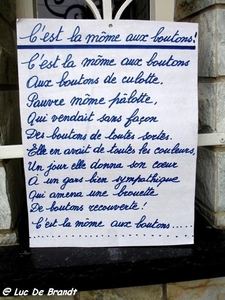 C'est la môme aux boutons!
C'est la môme aux boutons
Aux boutons de culotte.
Pauvre môme pâlotte,
Qui vendait sans façon
Des boutons de toutes sortes.
Elle en avait de toutes les couleurs,
Un jour elle donna son cœur
À un gars bien sympathique
Qui amena une brouette
De boutons recouverte!
C'est la môme aux boutons.....
© Luc De Brandt